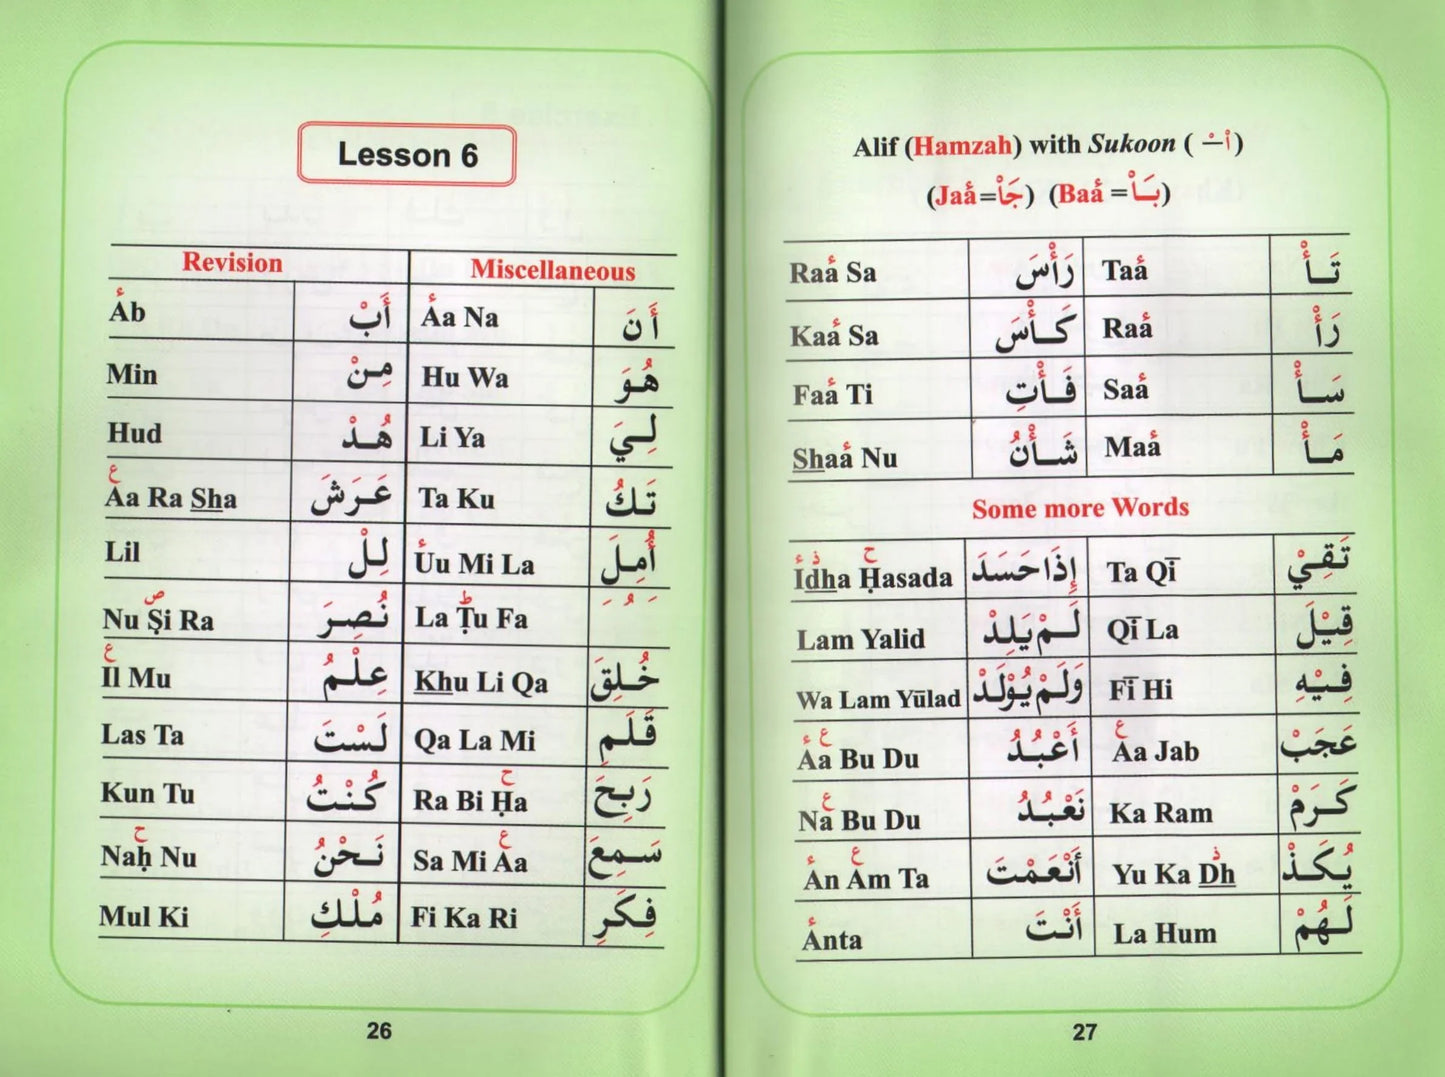 Lesson 6
Revision Miscellaneous
Åb أَبْ Åa Na أَنَ
Min مِنْ Hu Wa هُوَ
Hud هُدْ Li Ya لِيَ
Åa Ra Sha عَرَشَ Ta Ku تَكُ
Lil لِلْ Uu Mi La أُمِلَ
Nu Ṣi Ra نُصِرَ La Ṭu Fa
Il Mu عِلْمُ Khu Li Qa خُلِقَ
Las Ta لَسْتَ Qa La Mi قَلَمِ
Kun Tu كُنْتُ Ra Bi Ḥa رَبِحَ
Naḥ Nu نَحْنُ Sa Mi Aa سَمِعَ
Mul Ki مُلْكِ Fi Ka Ri فِكَرِ
26
Alif (Hamzah) with Sukoon ( —ْأ )
(Jaå=جَأْ) (Baå =بَأْ)
Raå Sa رَأْسَ Taå تَأْ
Kaå Sa كَأْسَ Raå رَأْ
Faå Ti فَأْتِ Saå سَأْ
Shaå Nu شَأْنُ Maå مَأْ
Some more Words
Idha Ḥasada إِذَا حَسَدَ Ta Qī تَقِيْ
Lam Yalid لَمْ يَلِدْ Qī La قِيْلَ
Wa Lam Yūlad وَلَمْ يُوْلَدْ Fī Hi فِيْهِ
Åa Bu Du أَعْبُدُ Aa Jab عَجَبْ
Na Bu Du نَعْبُدُ Ka Ram كَرَمْ
Ån Am Ta أَنْعَمْتَ Yu Ka Dh يُكَذْ
Ånta أَنْتَ La Hum لَهُمْ
27